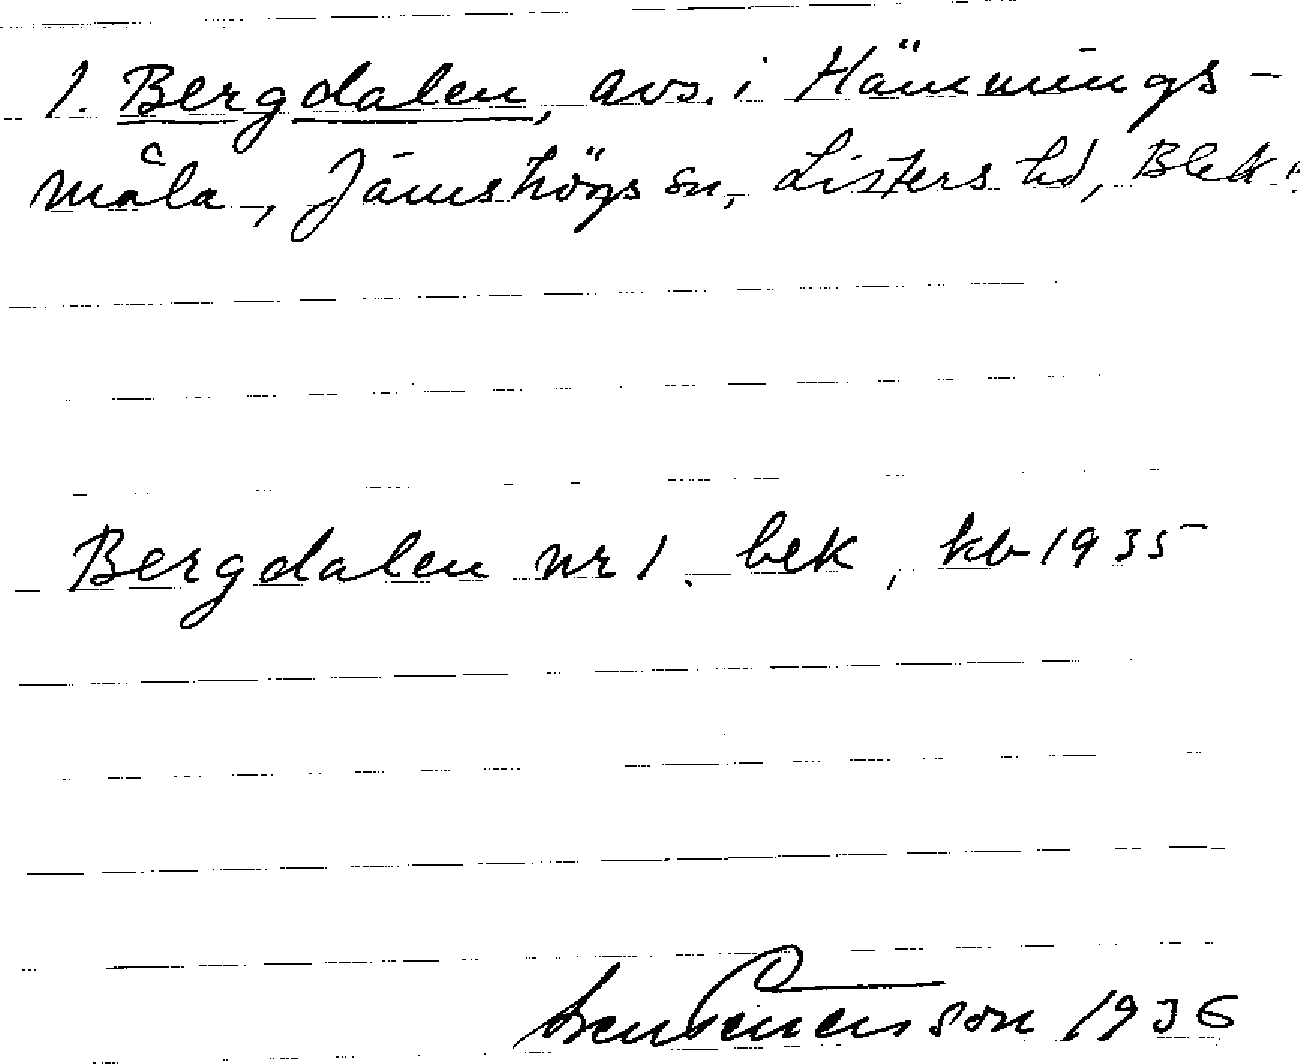 1. Bergdalen, avs. i Hämmings-
måla, Jämshögs sn, Listers hd, Blek.
Bergdalen nr 1. bek, kb 1935
1936